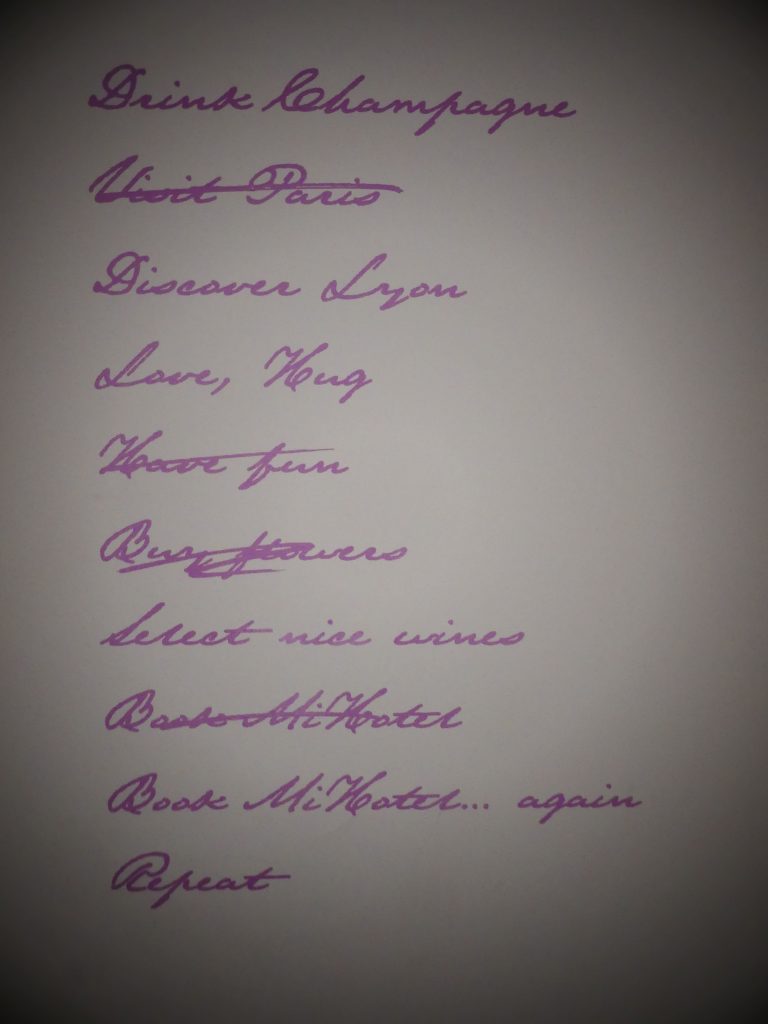 Drink Champagne
Visit Paris
Discover Lyon
Love, Hug
Have fun
Buy flowers
Select nice wines
Book MiHotel
Book MiHotel... again
Repeat